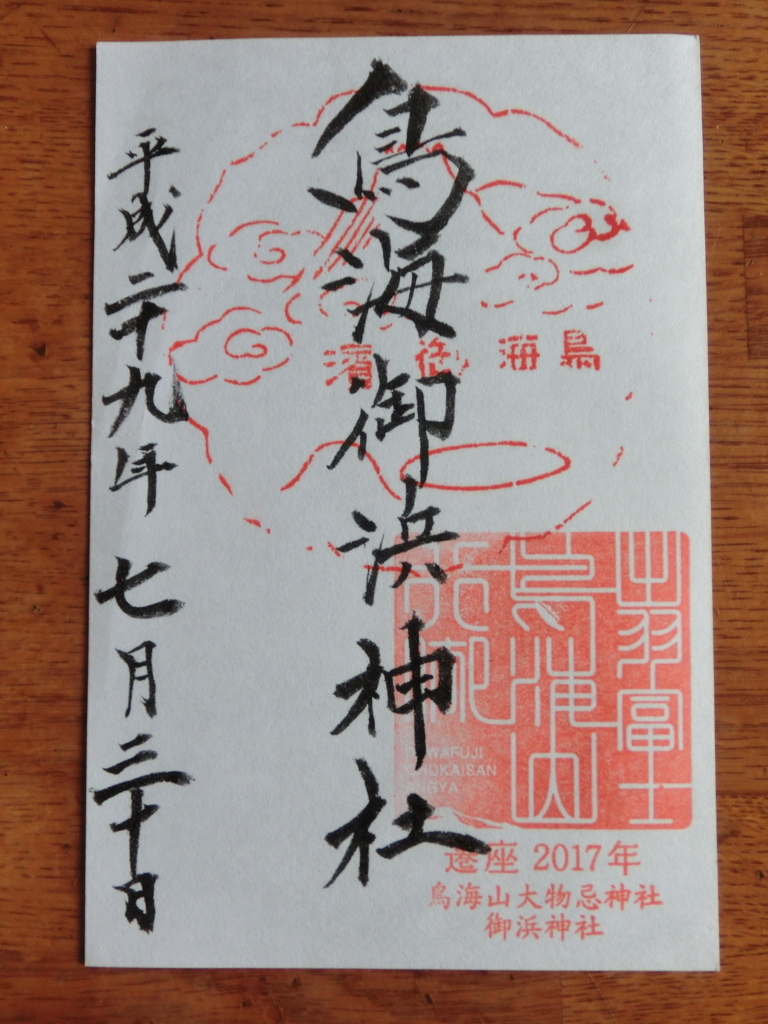 出羽富士
鳥海山
鳥海御濱
鳥海御浜神社
平成二十九年 七月三十日
遷座 2017年
鳥海山大物忌神社
御浜神社